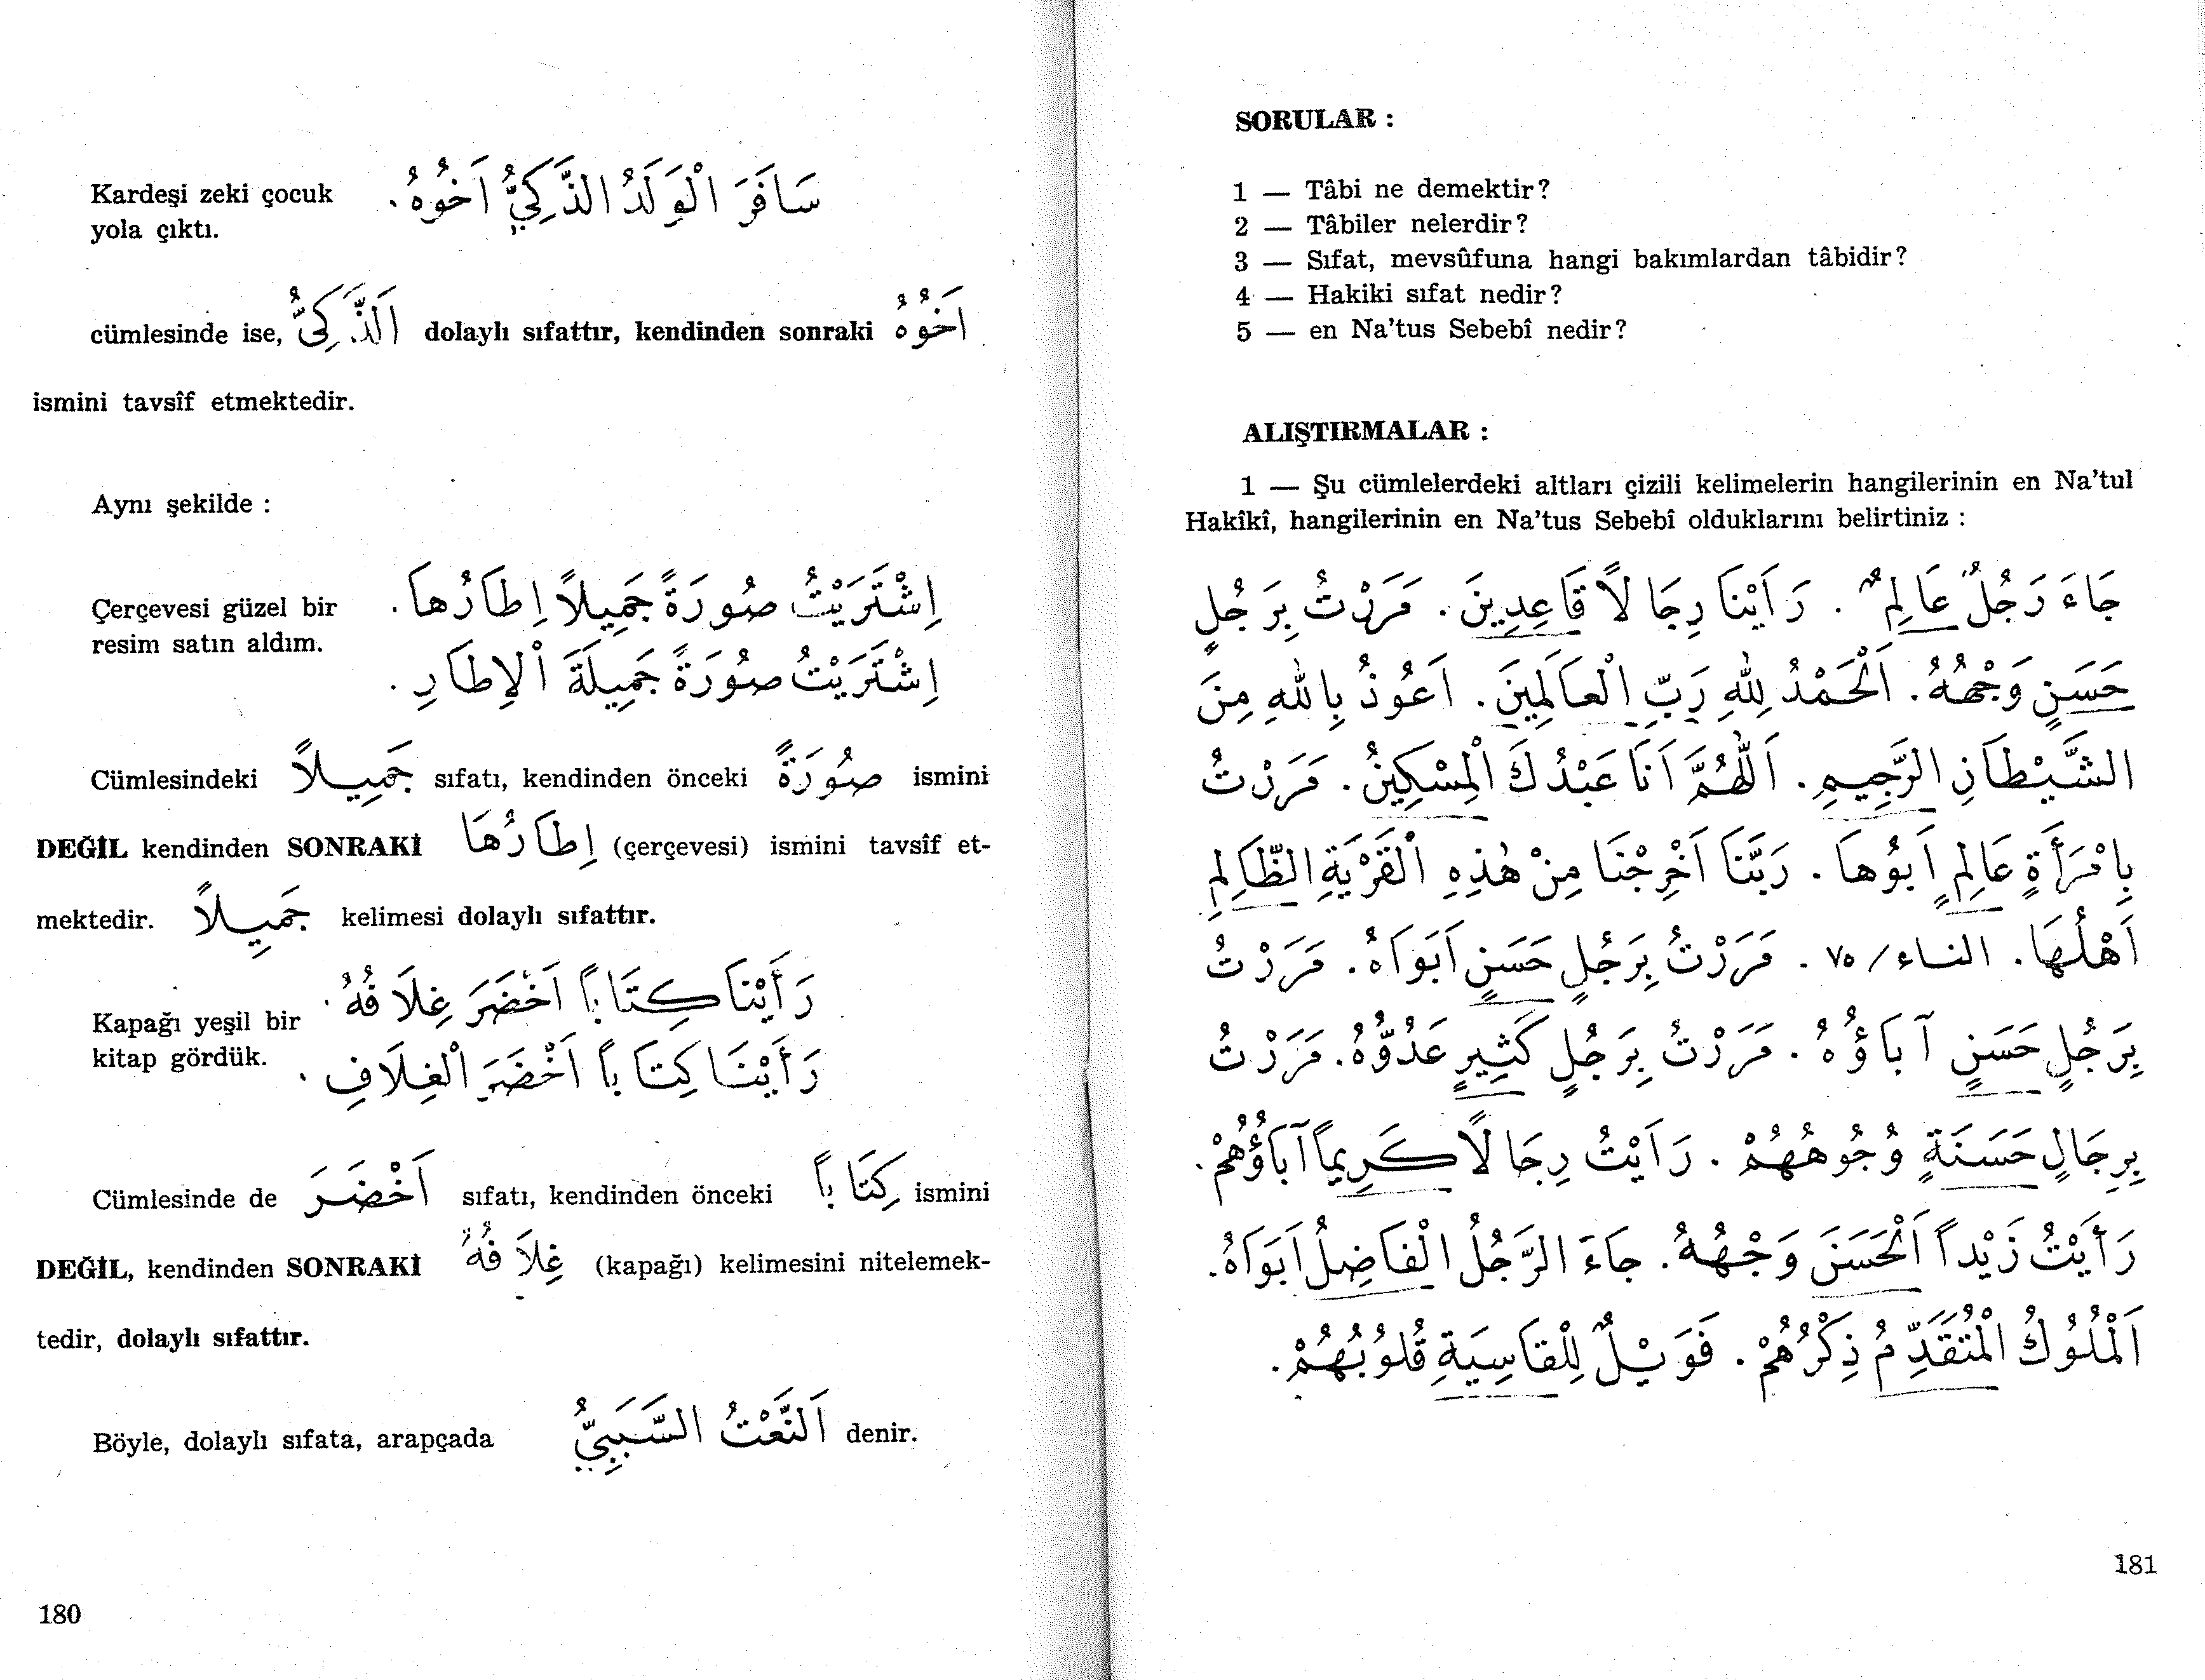 Kardeşi zeki çocuk سَافَرَ الْوَلَدُ الذَّكِيُّ اَخُوهُ.
yola çıktı.
cümlesinde ise, اَلذَّكِيُّ dolaylı sıfattır, kendinden sonraki اَخُوهُ
ismini tavsîf etmektedir.
Aynı şekilde :
Çerçevesi güzel bir اِشْتَرَيْتُ صُورَةً جَمِيلاً اِطَارُهَا.
resim satın aldım. اِشْتَرَيْتُ صُورَةً جَمِيلَةَ الْاِطَارِ.
Cümlesindeki جَمِيلاً sıfatı, kendinden önceki صُورَةً ismini
DEĞİL kendinden SONRAKİ اِطَارُهَا (çerçevesi) ismini tavsîf et-
mektedir. جَمِيلاً kelimesi dolaylı sıfattır.
Kapağı yeşil bir رَأَيْنَا كِتَاباً اَخْضَرَ غِلَافُهُ.
kitap gördük. رَأَيْنَا كِتَاباً اَخْضَرَ الْغِلَافِ.
Cümlesinde de اَخْضَرَ sıfatı, kendinden önceki كِتَاباً ismini
DEĞİL, kendinden SONRAKİ غِلَافُهُ (kapağı) kelimesini nitelemek-
tedir, dolaylı sıfattır.
Böyle, dolaylı sıfata, arapçada اَلنَّعْتُ السَّبَبِيُّ denir.
180
SORULAR :
1 — Tâbi ne demektir?
2 — Tâbiler nelerdir?
3 — Sıfat, mevsûfuna hangi bakımlardan tâbidir?
4 — Hakiki sıfat nedir?
5 — en Na'tus Sebebî nedir?
ALIŞTIRMALAR :
1 — Şu cümlelerdeki altları çizili kelimelerin hangilerinin en Na'tul
Hakîkî, hangilerinin en Na'tus Sebebî olduklarını belirtiniz :
جَاءَ رَجُلٌ عَالِمٌ. رَاَيْنَا رِجَالًا قَاعِدِينَ. مَرَرْتُ بِرَجُلٍ
حَسَنٍ وَجْهُهُ. اَلْحَمْدُ لِلّٰهِ رَبِّ الْعَالَمِينَ. اَعُوذُ بِاللهِ مِنَ
الشَّيْطَانِ الرَّجِيمِ. اَللّٰهُمَّ اَنَا عَبْدُكَ الْمِسْكِينُ. مَرَرْتُ
بِامْرَأَةٍ عَالِمٍ اَبُوهَا. رَبَّنَا اَخْرِجْنَا مِنْ هٰذِهِ الْقَرْيَةِ الظَّالِمِ
اَهْلُهَا. النساء/٧٥. مَرَرْتُ بِرَجُلٍ حَسَنٍ اَبَوَاهُ. مَرَرْتُ
بِرَجُلٍ حَسَنٍ آبَاؤُهُ. مَرَرْتُ بِرَجُلٍ كَثِيرٍ عَدُوُّهُ. مَرَرْتُ
بِرِجَالٍ حَسَنَةٍ وُجُوهُهُمْ. رَاَيْتُ رِجَالًا كَرِيماً آبَاؤُهُمْ.
رَأَيْتُ زَيْداً اَلْحَسَنَ وَجْهُهُ. جَاءَ الرَّجُلُ الْفَاضِلُ اَبَوَاهُ.
اَلْمُلُوكُ الْمُتَقَدِّمُ ذِكْرُهُمْ. فَوَيْلٌ لِلْقَاسِيَةِ قُلُوبُهُمْ.
181